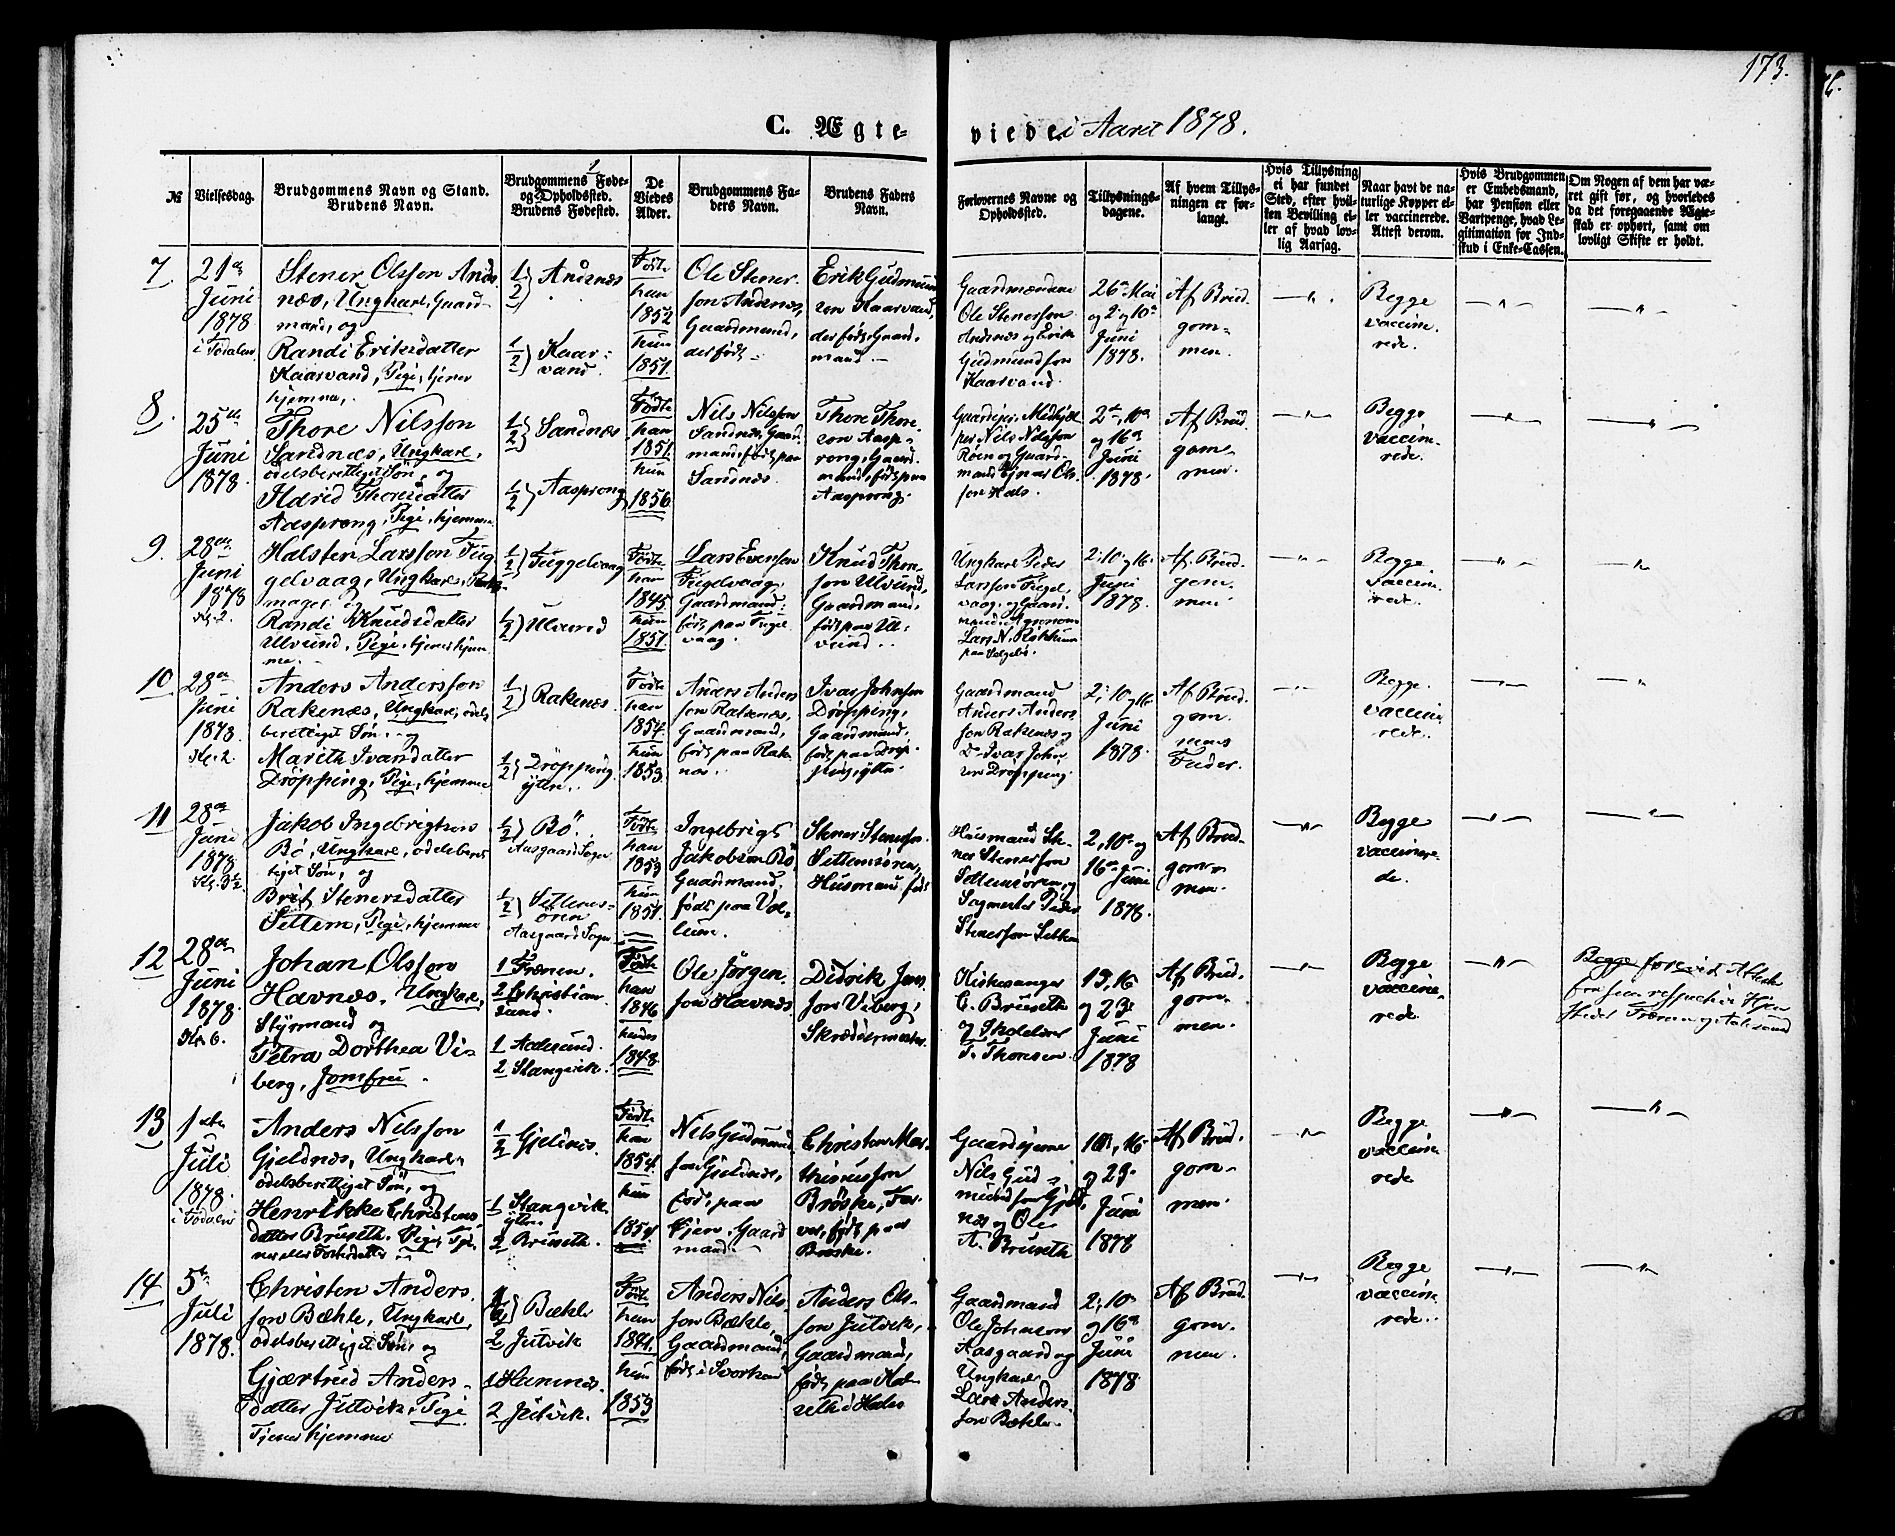 173.
C. Ægte-
viede i Aaret 1878.
№
Vielsesdag.
Brudgommens Navn og Stand.
Brudens Navn.
Brudgommens Føde-
og Opholdssted.
Brudens Fødested.
De
Viedes
Alder.
Brudgommens Fa-
ders Navn.
Brudens Faders
Navn.
Forlovernes Navne og
Opholdssted.
Tillysnings-
dagene.
Af hvem Tillys-
ningen er for-
langt.
Hvis Tillysning
ei har fundet
Sted, efter hvil-
ken Bevilling el-
ler af hvad lov-
lig Aarsag.
Naar havt de na-
turlige Kopper el-
ler vaccinerede.
Attest derom.
Hvis Brudgommen
er Embedsmand,
har Pension eller
Vartpenge, hvad Le-
gitimation for Ind-
skud i Enke-Cassen.
Om Nogen af dem har væ-
ret gift før, og hvorledes
da det foregaaende Ægte-
skab er ophørt, samt om
lovligt Skifte er holdt.
7
21de
Juni
1878
i Todalen
Stener Olsson Ands
næs, Ungkarl, Gaard-
mand, og
Randi Eriksdatter
Kaarvand, Pige, tjener
hjemme.
1/2 } Andsnæs
1/2 } Kaar-
vand.
Födt
han
1852
hun
1851.
Ole Stener
son Andsnæs,
Gaardmand,
der födt
Erik Gudmund
sen Kaarvand,
der födt, Gaard,
mand.
Gaardmændene
Ole Stenersson
Andsnæs og Erik
Gudmundson
Kaarvand.
26de Mai
og 2 og 10de
Juni
1878.
Af Brud-
gom-
men.
Begge
vaccine-
rede.
8.
25de
Juni
1878.
Thore Nilsson
Sandnæs, Ungkarl,
odelsberettiget Sön, og
Marid Thoresdatter
Aasprong, Pige, hjemme
1/2 } Sandnæs
1/2 } Aasprong
Födt
han
1851.
hun
1856.
Nils Nilsson
Sandnæs, Gaard
mand, födt paa
Sandnæs.
Thore Thore-
sen Aasp-
rong, Gaard
mand, födt paa
Aasprong.
Nils Nilsson
Röen og Gaard-
mand Einar Ols-
son Hals.
2de, 10de
og 16de
Juni
1878.
Af Brud
gom-
men.
Begge
vaccine-
rede.
9.
28de
Juni
1878
Kl. 2.
Halsten Larsson Fug
gelvaag, Ungkarl,
mager, og
Randi Knudsdatter
Ulvund, Pige, tjener hjem-
me.
1/2 } Fuggelvaag
1/2 } Ulvund
Födt
han
1845.
hun
1851.
Lars Evenson
Fugelvaag,
Gaardmand,
födt paa Fugel
vaag.
Knud Thor-
son Ulvund,
Gaardmand,
födt paa Ul-
vund.
Ungkarl Peder
Larsson Fugel-
vaag, og Gaard-
Lars N. Rökkum
2, 10 og 16.
Juni
1878.
Af Brud-
gom-
men.
Begge
vaccine-
rede.
10
28de
Juni
1878.
Kl. 2.
Anders Andersson
Rakenæs, Ungkarl, odels
berettiget Sön, og
Marith Ivarsdatter
Dröpping, Pige, hjemme
1/2 } Rakenæs.
1/2 } Dröpping
ytre.
Födt
han
1857.
hun
1853.
Anders Anders
son Rakenæs,
Gaardmand,
födt paa Rake
næs.
Ivar Johnson
Dröpping,
Gaardmand,
födt paa Dröp-
ping, ytre.
Gaardmand
Anders Anders
son Rakenæs og
Do Ivar John
sen Dröpping.
2, 10 og 16
Juni
1878.
Af Brud-
gom-
mens
Fader.
Begge
vaccine-
rede.
11
28de
Juni
1878.
Kl. 3½.
Jakob Ingebrigtson
Bö, Ungkarl, odelsberet
tiget Sön, og
Brit Stenersdatter
Settem, Pige, hjemme
1/2 } Bö.
Aasgaard Sogn
1/2 } Settemsören
Aasgaard Sogn.
Födt
han
1853
hun
1851.
Ingebrigt
Jakobsen Bö,
Gaardmand,
födt paa
Stener Stenerson
Settemsören,
Husmand, födt
Husmand Ste-
ner Stenersson
Settemsören, og
Peder
Stenersson Settem
2, 10de og
16de Juni
1878.
Af Brud-
gom-
men.
Begge
vaccinere-
de.
12
28de
Juni
1878.
Kl. 6.
Johan Olsson
Havnæs, Ungkarl,
Styrmand og
Petra Dorthea Vi-
berg, Jomfru.
1 Frænen.
2 Christian-
sund.
1 Aalesund.
2 Stangvik.
Födt
han
1846
hun
1848.
Ole Jörgen-
son Havnæs
Didrik Jen
son Viberg,
Skræddermester.
Kirkesanger
C. Bruseth
og Skolelærer
T. Thoresen.
13, 16
og 23de
Juni
1878
Af Brud-
gom-
men.
Begge
vaccine-
rede
Begge forevist Attest
fra sine respective Hjem
steder Frænen og Aalesund
13
1ste
Juli
1878.
i Todalen
Anders Nilsson
Gjeldnæs, Ungkarl,
odelsberettiget Sön, og
Henrikke Christens
datter Bruseth, Pige,
1/2 Gjeldnæs.
1 Stangvik
ytre
2 Bruseth.
Födt
han
1854.
hun
1854.
Nils Gudmund
son Gjeldnæs,
födt paa
Gaard
mand.
Christen
Bröske, Far-
ver, födt paa
Bröske.
Gaardejerne
Nils Gud-
mundson Gjeld-
næs og Ole
A. Bruseth
10de, 16
og 23.
Juni
1878
Af Brud-
gom-
men.
Begge
vaccine
rede
14
5te
Juli
1878.
Christen Anders
son Bæhle, Ungkarl,
odelsberettiget Sön, og
Gjærtrud Anders-
datter Jutvik, Pige
Tjener hjemme
1/2 } Bæhle
2 Jutvik
1 Hennæs.
2 Jutvik.
Födt
han
1841.
hun
1853
Anders Nils-
son Bæhle,
Gaardmand,
födt i
Anders Ols-
son Jutvik,
Gaardmand,
födt paa
i Hals
Gaardmand
Ole Johnson
Aasgaard og
Ungkarl
Lars Anders-
son Bæhle.
2, 10de
og 16de
Juni
1878
Af Brud-
gom-
men.
Begge
vaccine-
rede.